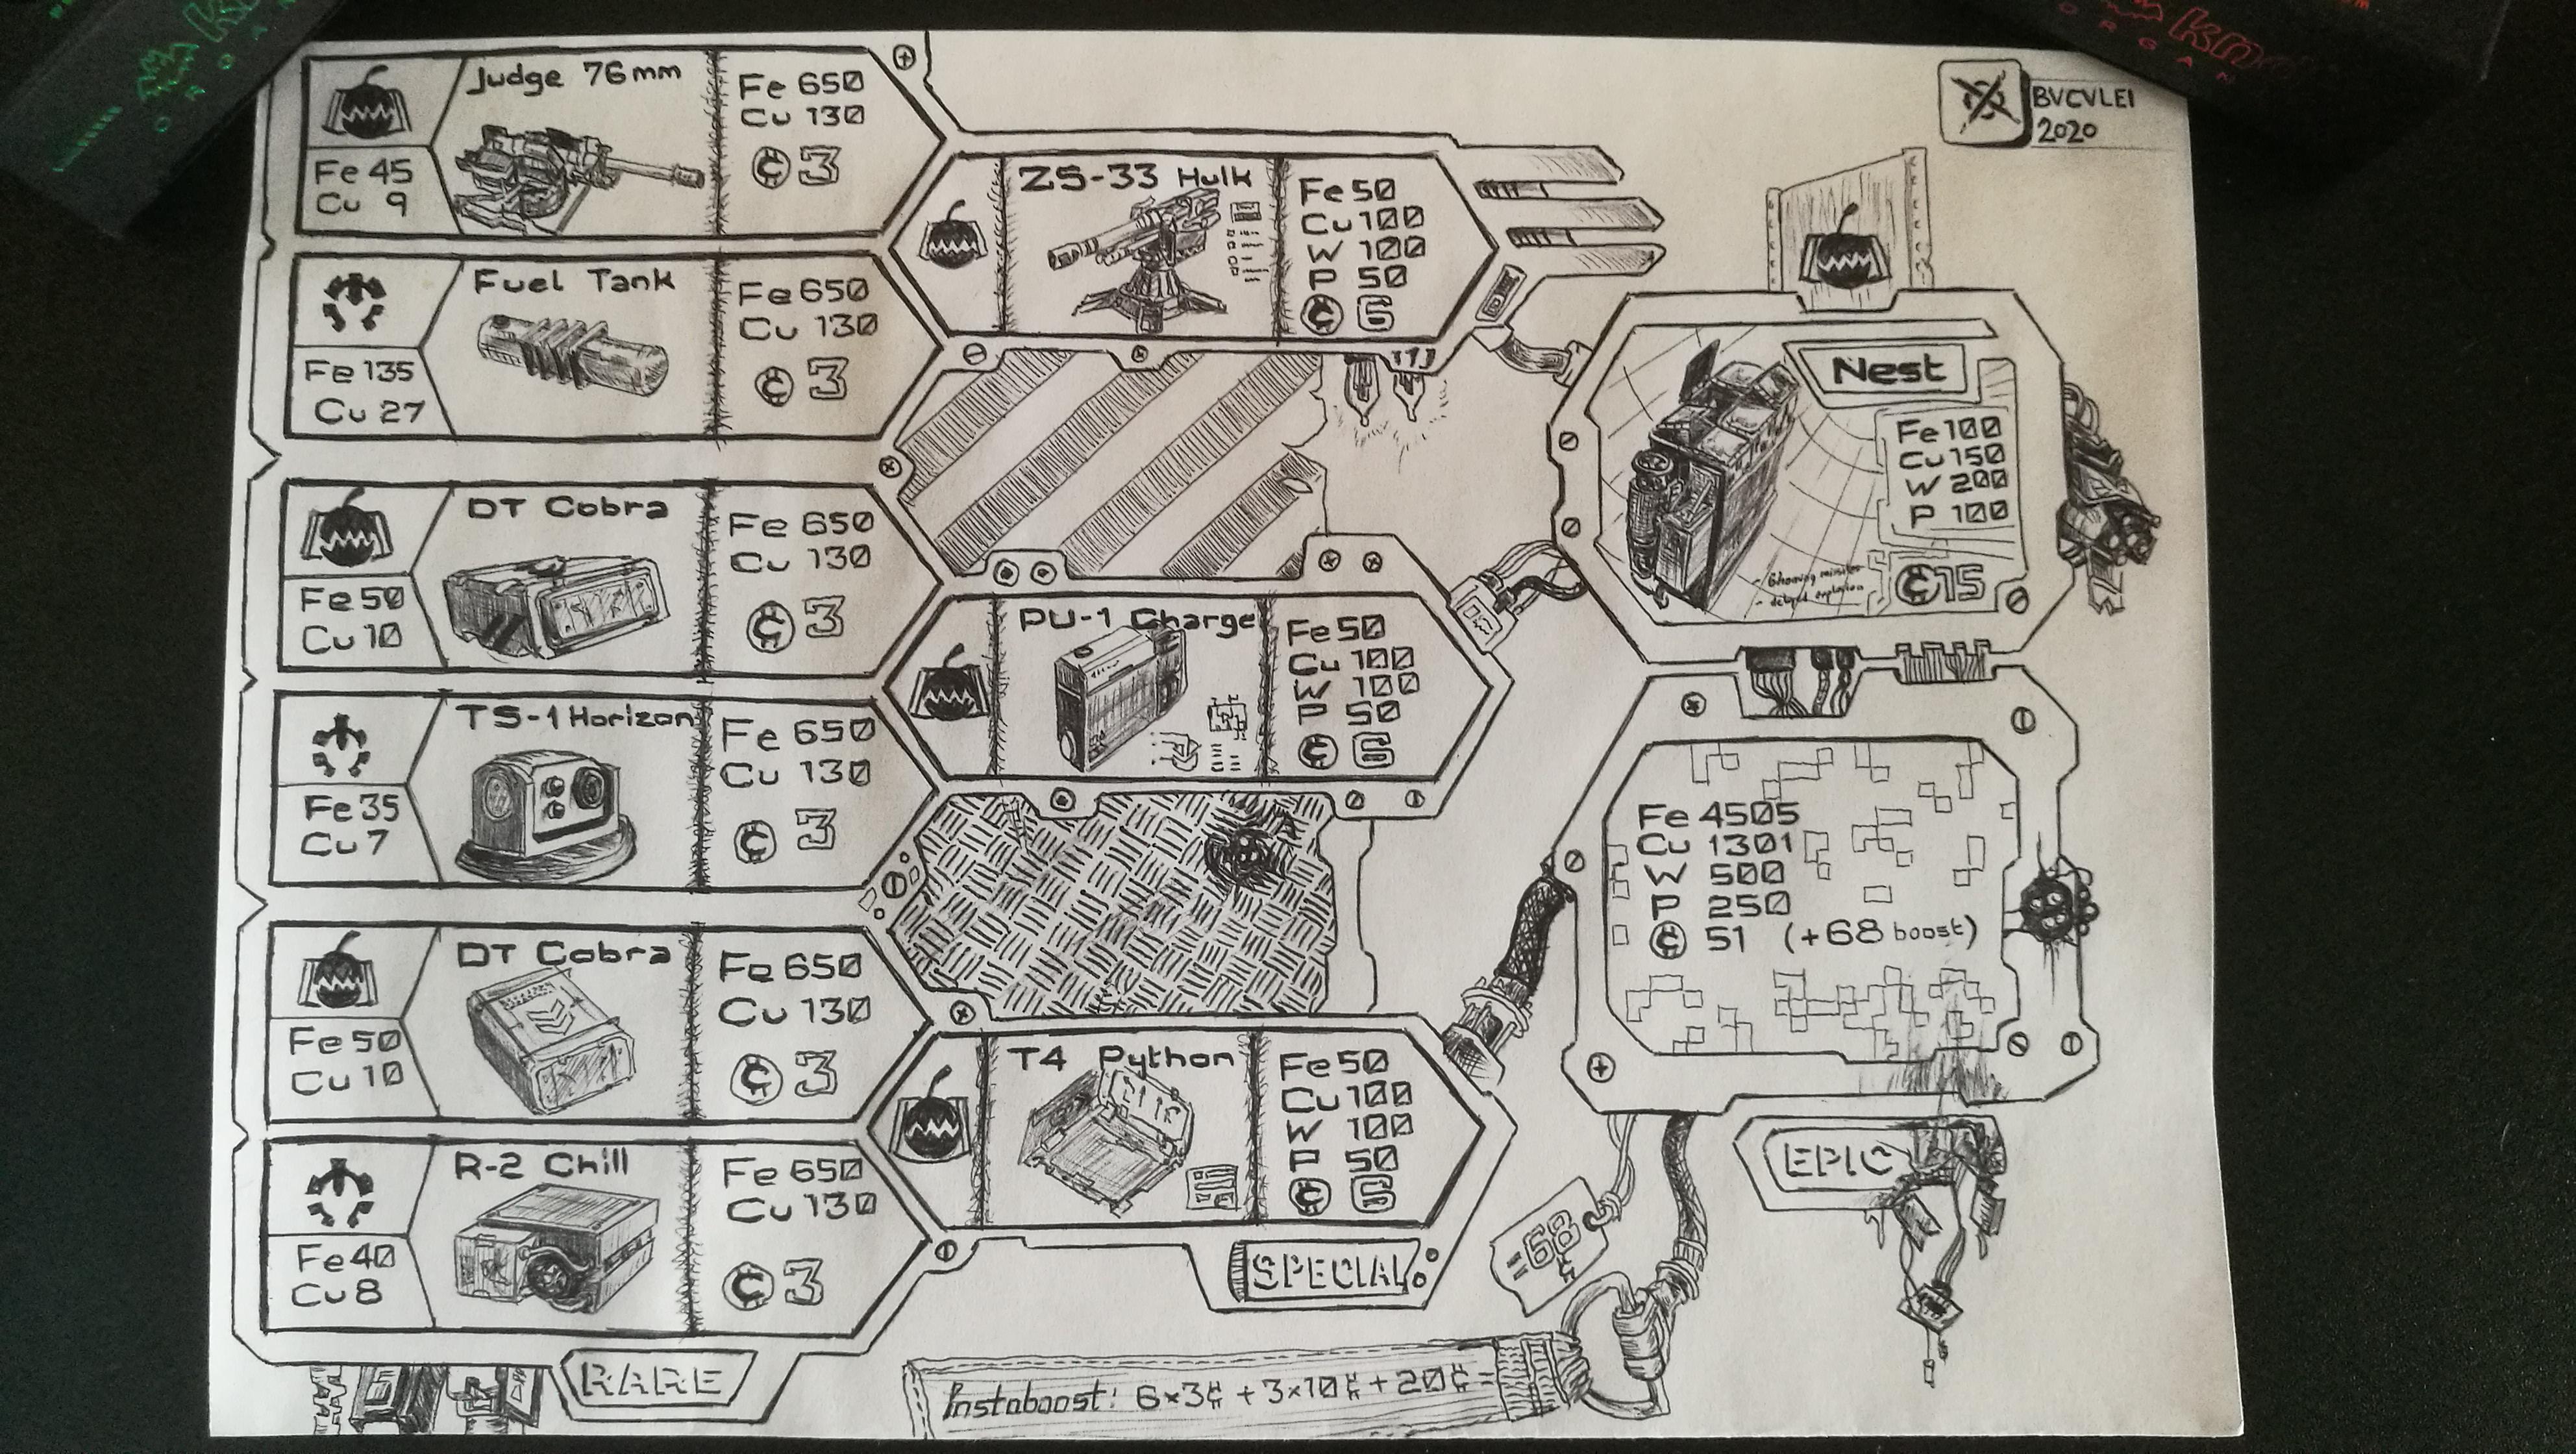 Judge 76mm
Fe 45
Cu 9
Fe 650
Cu 130
₵ 3
Fuel Tank
Fe 135
Cu 27
Fe 650
Cu 130
₵ 3
DT Cobra
Fe 50
Cu 10
Fe 650
Cu 130
₵ 3
TS-1 Horizon
Fe 35
Cu 7
Fe 650
Cu 130
₵ 3
DT Cobra
Fe 50
Cu 10
Fe 650
Cu 130
₵ 3
R-2 Chill
Fe 40
Cu 8
Fe 650
Cu 130
₵ 3
RARE
ZS-33 Hulk
Fe 50
Cu 100
W 100
P 50
₵ 6
PU-1 Charge
Fe 50
Cu 100
W 100
P 50
₵ 6
T4 Python
Fe 50
Cu 100
W 100
P 50
₵ 6
SPECIAL
BVCVLEI
2020
Nest
Fe 100
Cu 150
W 200
P 100
- 6 homing missiles
- delayed explosion
₵ 15
Fe 4505
Cu 1301
W 500
P 250
₵ 51 (+68 boost)
EPIC
=68₵
Instaboost: 6×3₵ + 3×10₵ + 20₵ =